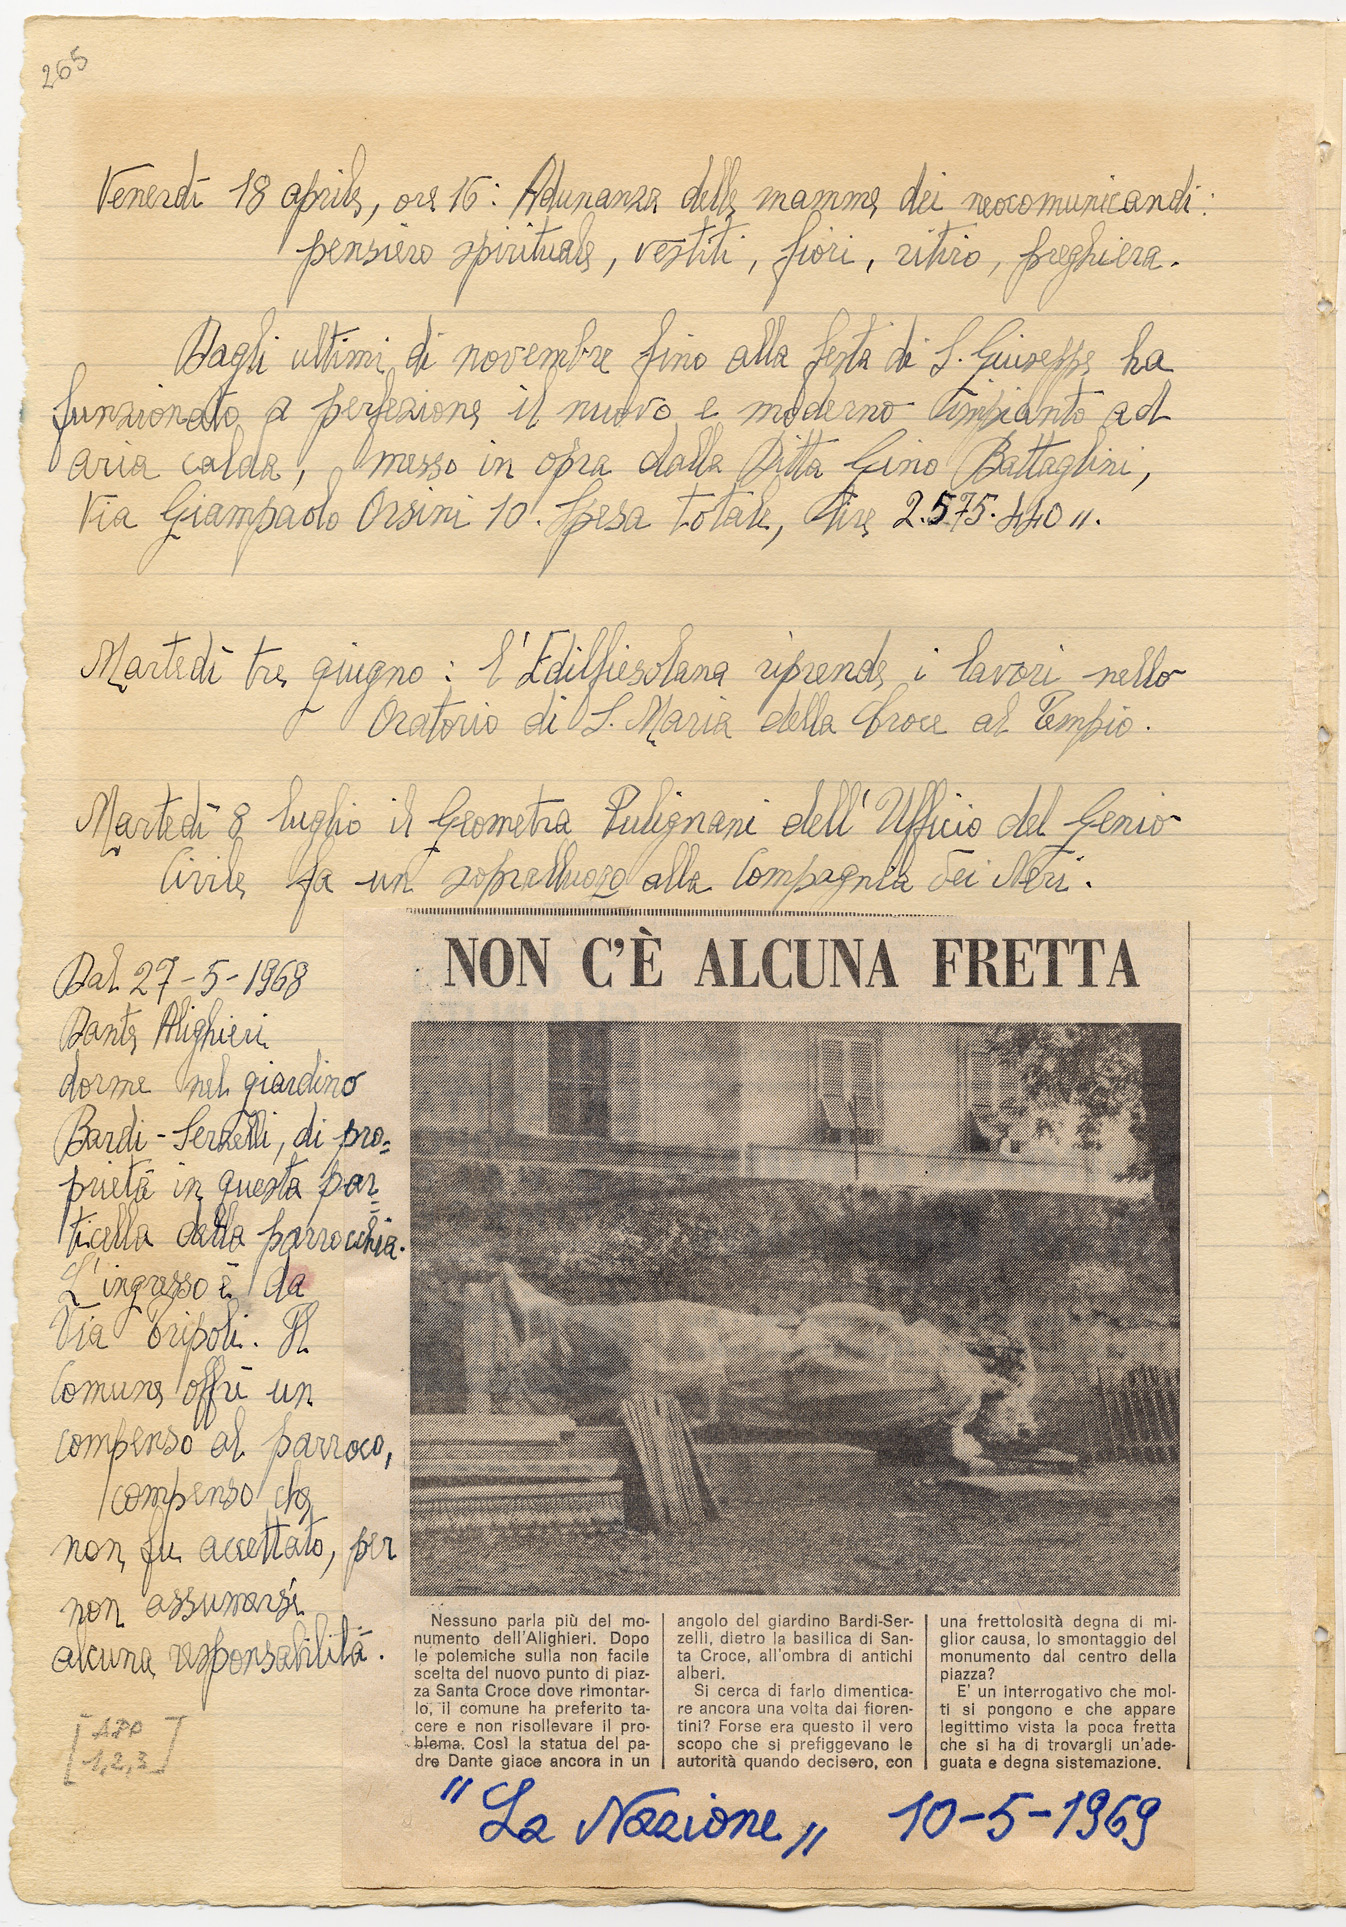 265
Venerdì 18 aprile, ore 16: Adunanza delle mamme dei neocomunicandi:
pensiero spirituale, vestiti, fiori, ritiro, preghiera.
Dagli ultimi di novembre fino alla festa di S. Giuseppe ha
funzionato a perfezione il nuovo e moderno impianto ad
aria calda, messo in opra dalla Ditta Gino Battaglini,
Via Giampaolo Orsini 10. Spesa totale, lire 2.575.440 ".
Martedì tre giugno: l'Edilfiesolana riprende i lavori nello
Oratorio di S. Maria della Croce al Tempio.
Martedì 8 luglio il Geometra Pulignani dell'Ufficio del Genio
Civile fa un sopralluogo alla Compagnia dei Neri.
Dal 27-5-1968
Dante Alighieri
dorme nel giardino
Bardi-Serzelli, di pro=
prietà in questa par=
ticella della parrocchia.
L'ingresso è da
Via Tripoli. Il
Comune offrì un
compenso al parroco,
compenso che
non fu accettato, per
non assumersi
alcuna responsabilità.
[APP
1,2,3]
NON C'È ALCUNA FRETTA
Nessuno parla più del mo-
numento dell'Alighieri. Dopo
le polemiche sulla non facile
scelta del nuovo punto di piaz-
za Santa Croce dove rimontar-
lo, il comune ha preferito ta-
cere e non risollevare il pro-
blema. Così la statua del pa-
dre Dante giace ancora in un
angolo del giardino Bardi-Ser-
zelli, dietro la basilica di San-
ta Croce, all'ombra di antichi
alberi.
Si cerca di farlo dimentica-
re ancora una volta dai fioren-
tini? Forse era questo il vero
scopo che si prefiggevano le
autorità quando decisero, con
una frettolosità degna di mi-
glior causa, lo smontaggio del
monumento dal centro della
piazza?
E' un interrogativo che mol-
ti si pongono e che appare
legittimo vista la poca fretta
che si ha di trovargli un'ade-
guata e degna sistemazione.
"La Nazione" 10-5-1969